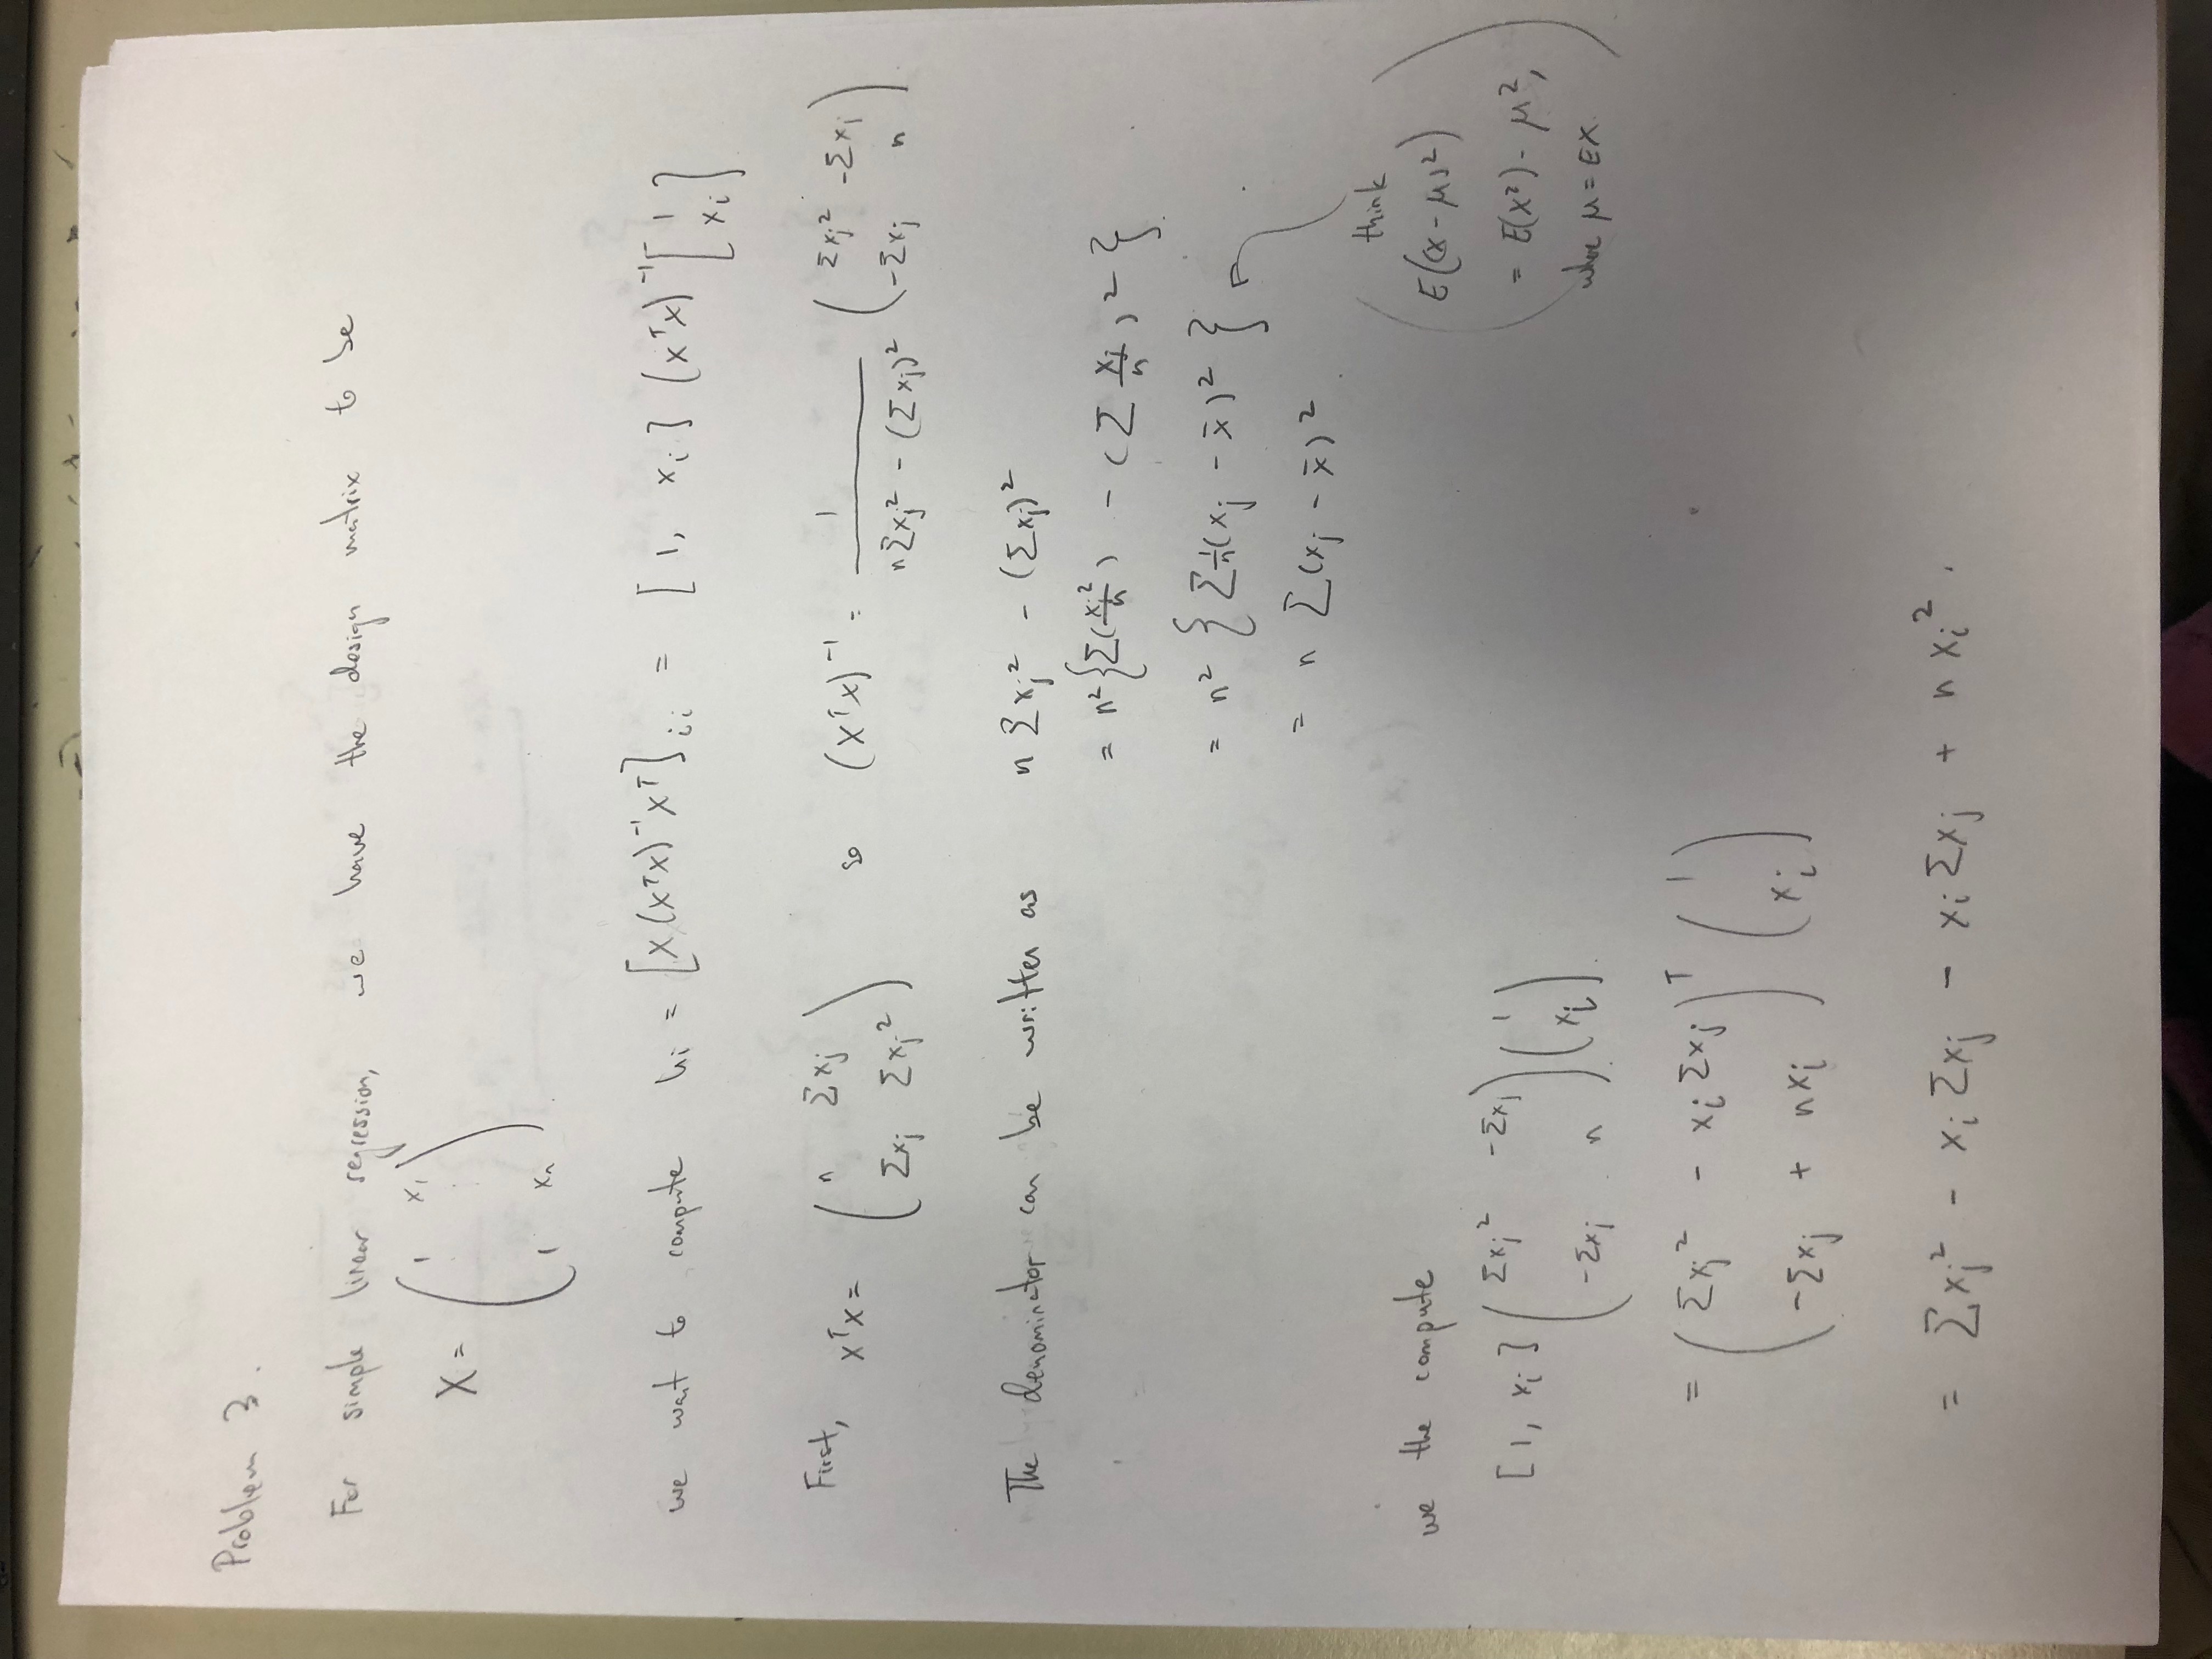 Problem 3.
For simple linear regression, we have the design matrix to be
X = ( 1 x₁ ⋮ ⋮ 1 xₙ )
we want to compute hi = [X(XᵀX)⁻¹Xᵀ]ᵢᵢ = [1, xᵢ] (XᵀX)⁻¹ [1 xᵢ]
First, XᵀX = ( n Σxⱼ Σxⱼ Σxⱼ² ) so (XᵀX)⁻¹ = 1 / (nΣxⱼ² - (Σxⱼ)²) ( Σxⱼ² -Σxⱼ -Σxⱼ n )
The denominator can be written as n Σxⱼ² - (Σxⱼ)²
= n² {Σ(xⱼ²/n) - (Σ xⱼ/n)²}
= n² {Σ 1/n (xⱼ - x̄)²}
= n Σ(xⱼ - x̄)²
(think
E((X - μ)²)
= E(X²) - μ²,
where μ = EX)
we the compute
[1, xᵢ] ( Σxⱼ² -Σxⱼ -Σxⱼ n ) ( 1 xᵢ )
= ( Σxⱼ² - xᵢ Σxⱼ -Σxⱼ + nxᵢ )ᵀ ( 1 xᵢ )
= Σxⱼ² - xᵢ Σxⱼ - xᵢ Σxⱼ + n xᵢ².